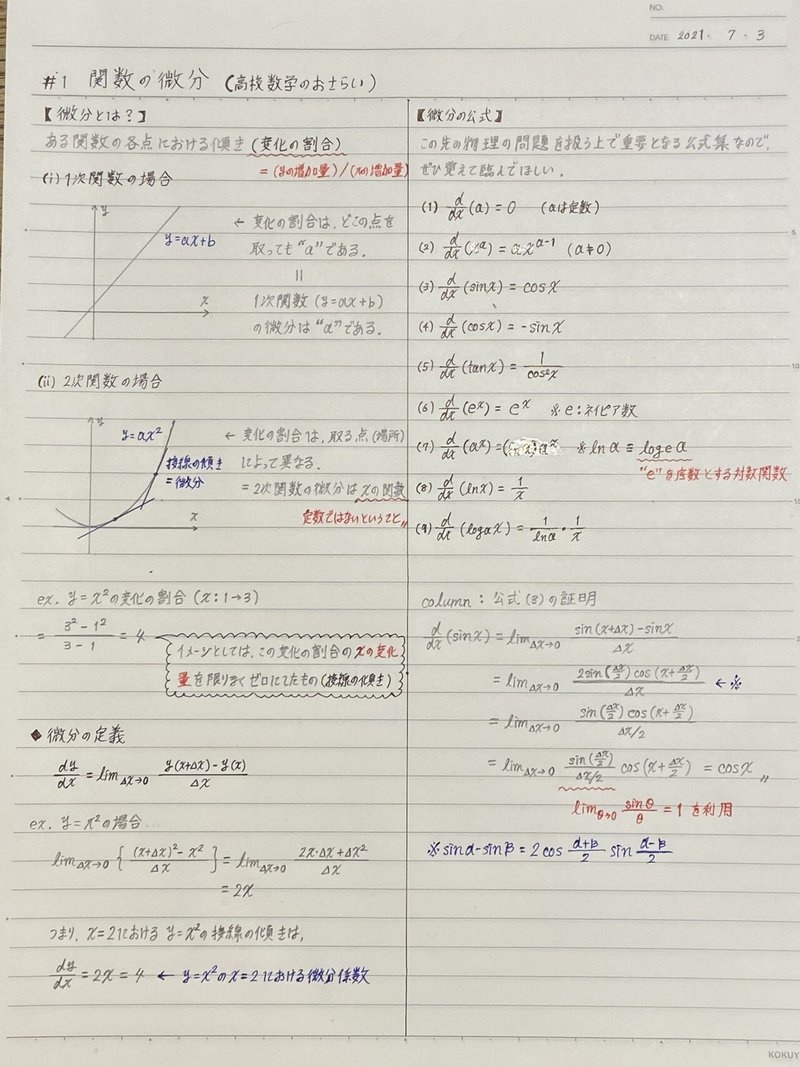 NO.
DATE 2021・7・3
#1 関数の微分 (高校数学のおさらい)
【微分とは?】
ある関数の各点における傾き(変化の割合)
= (yの増加量)/(xの増加量)
(i) 1次関数の場合
y
y=ax+b
x
← 変化の割合は、どこの点を
取っても"a"である.
||
1次関数 (y=ax+b)
の微分は"a"である.
(ii) 2次関数の場合
y
y=ax²
接線の傾き
=微分
x
← 変化の割合は、取る点(場所)
によって異なる.
= 2次関数の微分は xの関数
定数ではないということ〃
ex. y=x²の変化の割合 (x:1→3)
= (3²-1²)/(3-1) = 4
イメージとしては、この変化の割合の xの変化
量を限りなくゼロにしたもの(接線の傾き)
◆ 微分の定義
dy/dx = lim Δx→0 (y(x+Δx)-y(x))/Δx
ex. y=x²の場合
lim Δx→0 {((x+Δx)²-x²)/Δx} = lim Δx→0 (2x・Δx+Δx²)/Δx
= 2x
つまり、x=2における y=x²の接線の傾きは、
dy/dx = 2x = 4 ← y=x²のx=2における微分係数
【微分の公式】
この先の物理の問題を扱う上で重要となる公式集なので、
ぜひ覚えて臨んでほしい.
(1) d/dx (a) = 0 (aは定数)
(2) d/dx (xᵃ) = a x^(a-1) (a≠0)
(3) d/dx (sinx) = cosx
(4) d/dx (cosx) = -sinx
(5) d/dx (tanx) = 1/cos²x
(6) d/dx (eˣ) = eˣ ※e:ネイピア数
(7) d/dx (aˣ) = (lna)aˣ ※lna ≡ logea
"e"を底数とする対数関数
(8) d/dx (lnx) = 1/x
(9) d/dx (logax) = 1/lna・1/x
column : 公式(3)の証明
d/dx (sinx) = lim Δx→0 (sin(x+Δx)-sinx)/Δx
= lim Δx→0 (2sin(Δx/2)cos(x+Δx/2))/Δx ←※
= lim Δx→0 (sin(Δx/2)cos(x+Δx/2))/(Δx/2)
= lim Δx→0 (sin(Δx/2))/(Δx/2) cos(x+Δx/2) = cosx〃
lim θ→0 sinθ/θ = 1 を利用
※sinα-sinβ = 2cos (α+β)/2 sin (α-β)/2
KOKUY